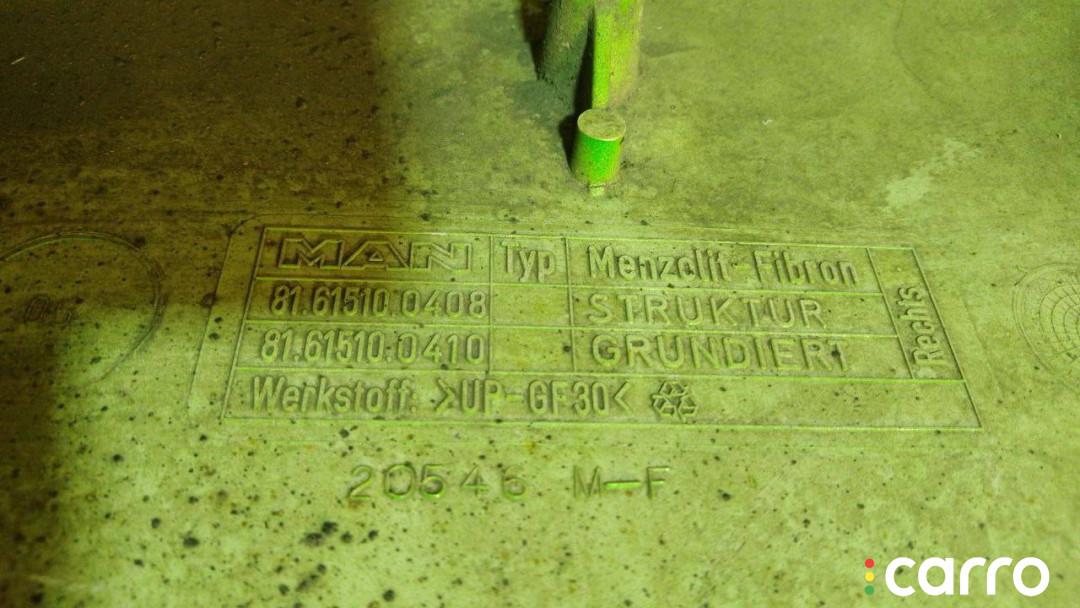 MAN Typ Menzolit-Fibron
81.61510.0408 STRUKTUR
81.61510.0410 GRUNDIERT
Rechts
Werkstoff: >UP-GF30<
20546 M-F
carro